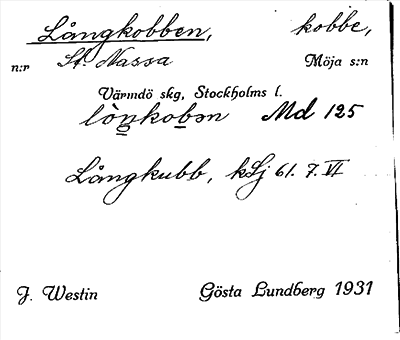 Långkobben, kobbe,
n:r St. Nassa Möja s:n
Värmdö skg, Stockholms l.
lòŋkobən Md 125
Långkubb, kSj 61. 7. VI
J. Westin Gösta Lundberg 1931